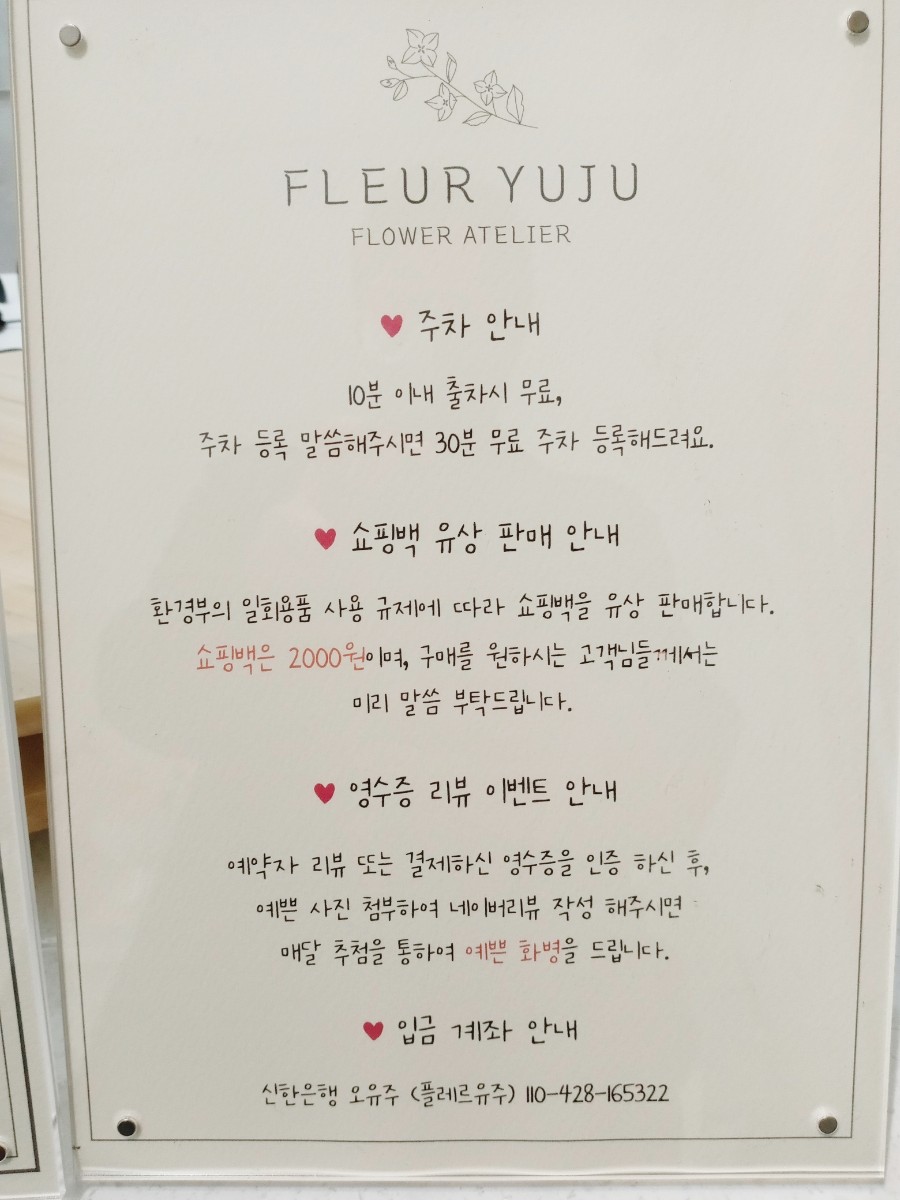 FLEUR YUJU
FLOWER ATELIER
♥ 주차 안내
10분 이내 출차시 무료,
주차 등록 말씀해주시면 30분 무료 주차 등록해드려요.
♥ 쇼핑백 유상 판매 안내
환경부의 일회용품 사용 규제에 따라 쇼핑백을 유상 판매합니다.
쇼핑백은 2000원이며, 구매를 원하시는 고객님들께서는
미리 말씀 부탁드립니다.
♥ 영수증 리뷰 이벤트 안내
예약자 리뷰 또는 결제하신 영수증을 인증 하신 후,
예쁜 사진 첨부하여 네이버리뷰 작성 해주시면
매달 추첨을 통하여 예쁜 화병을 드립니다.
♥ 입금 계좌 안내
신한은행 오유주 (플레르유주) 110-428-165322